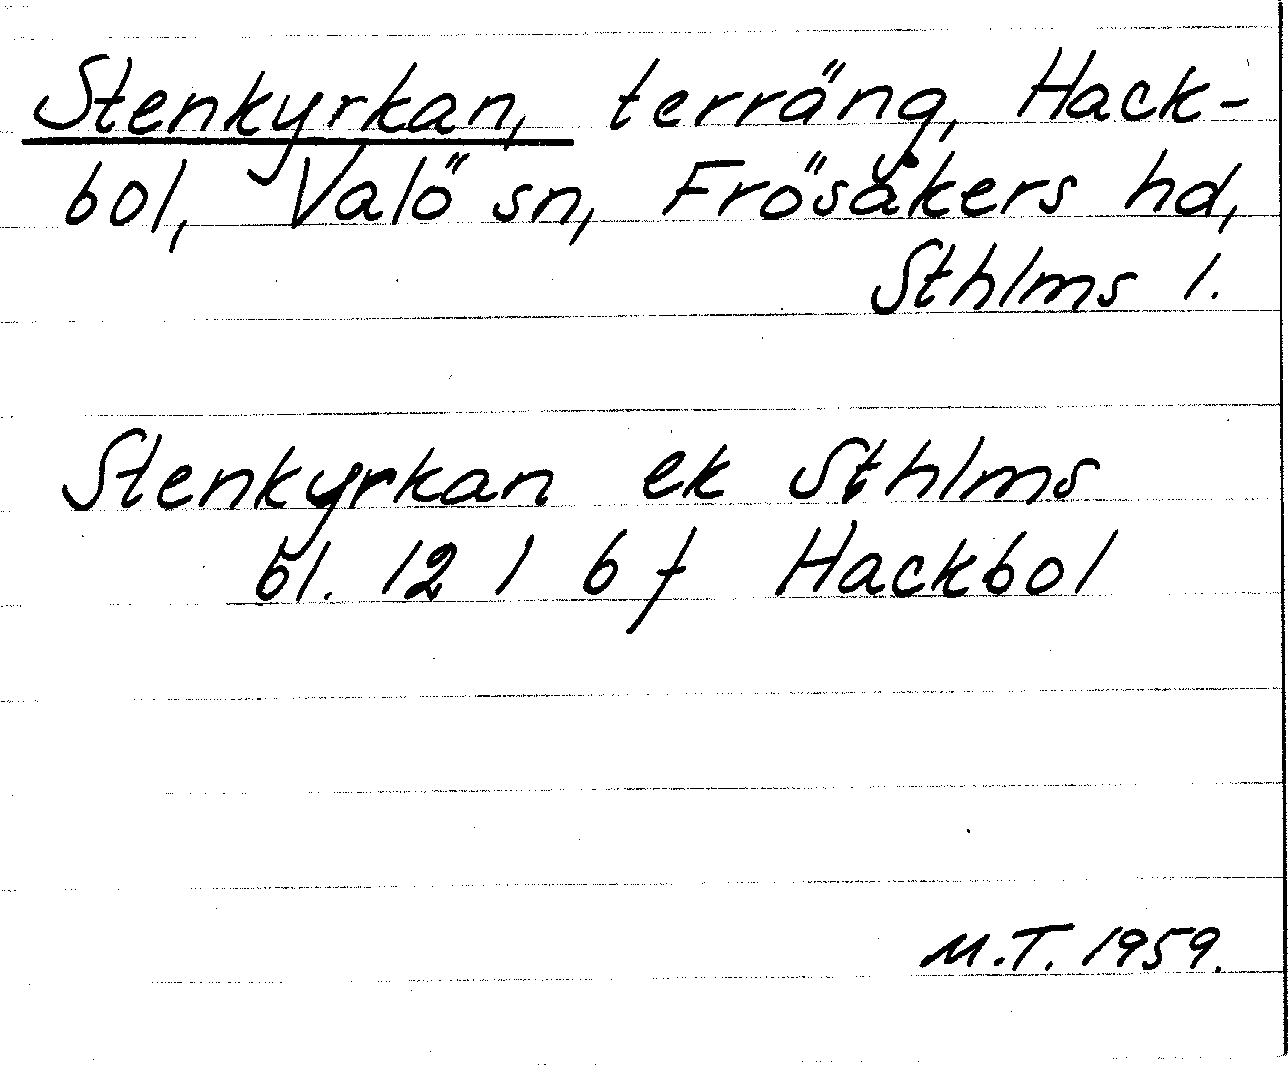 Stenkyrkan, terräng, Hack-
bol, Valö sn, Frösåkers hd,
Sthlms l.
Stenkyrkan ek Sthlms
bl. 12 I 6 f Hackbol
M.T. 1959.